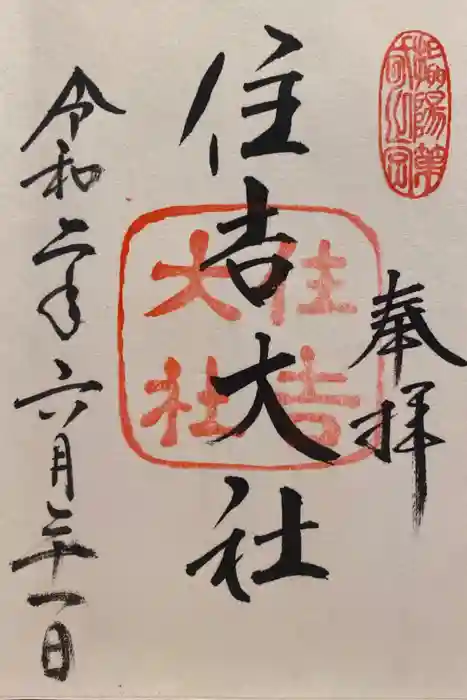 奉拝
住吉大社
住吉
大社
令和二年六月二十一日